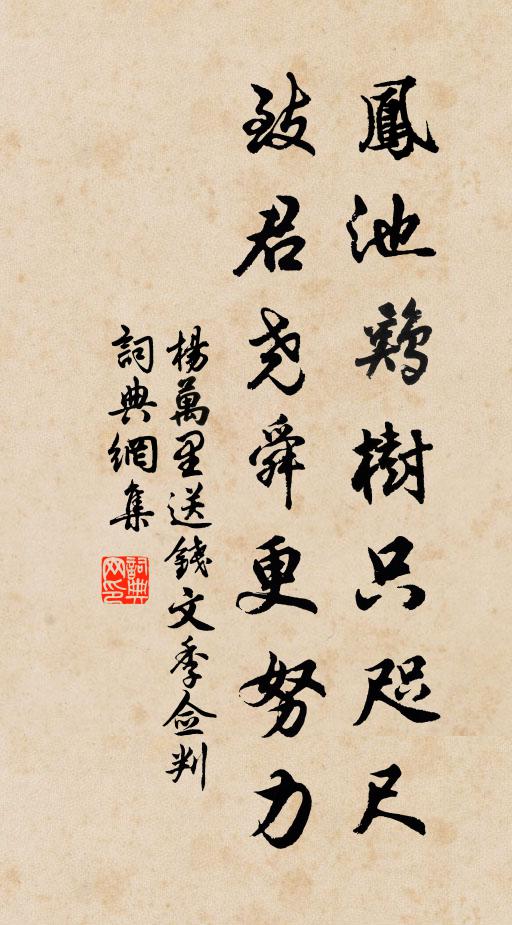 鳳池鷄樹只咫尺
致君堯舜更努力
楊萬里送錢文季僉判
詞典網集
詞典網印